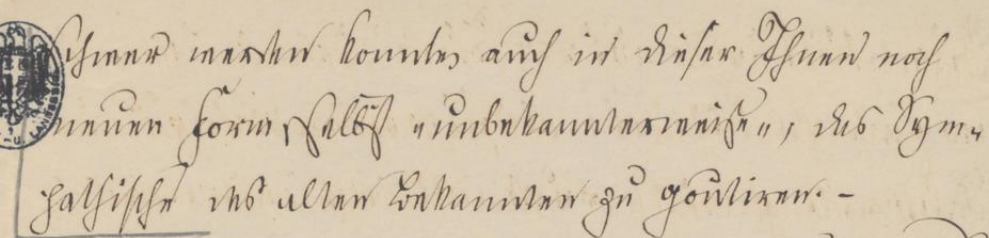 schwer werden konnte, auch in dieser Ihnen noch
neuen Form, selbst „unbekannterweise“, das Sym-
pathische des alten Bekannten zu goutiren. –